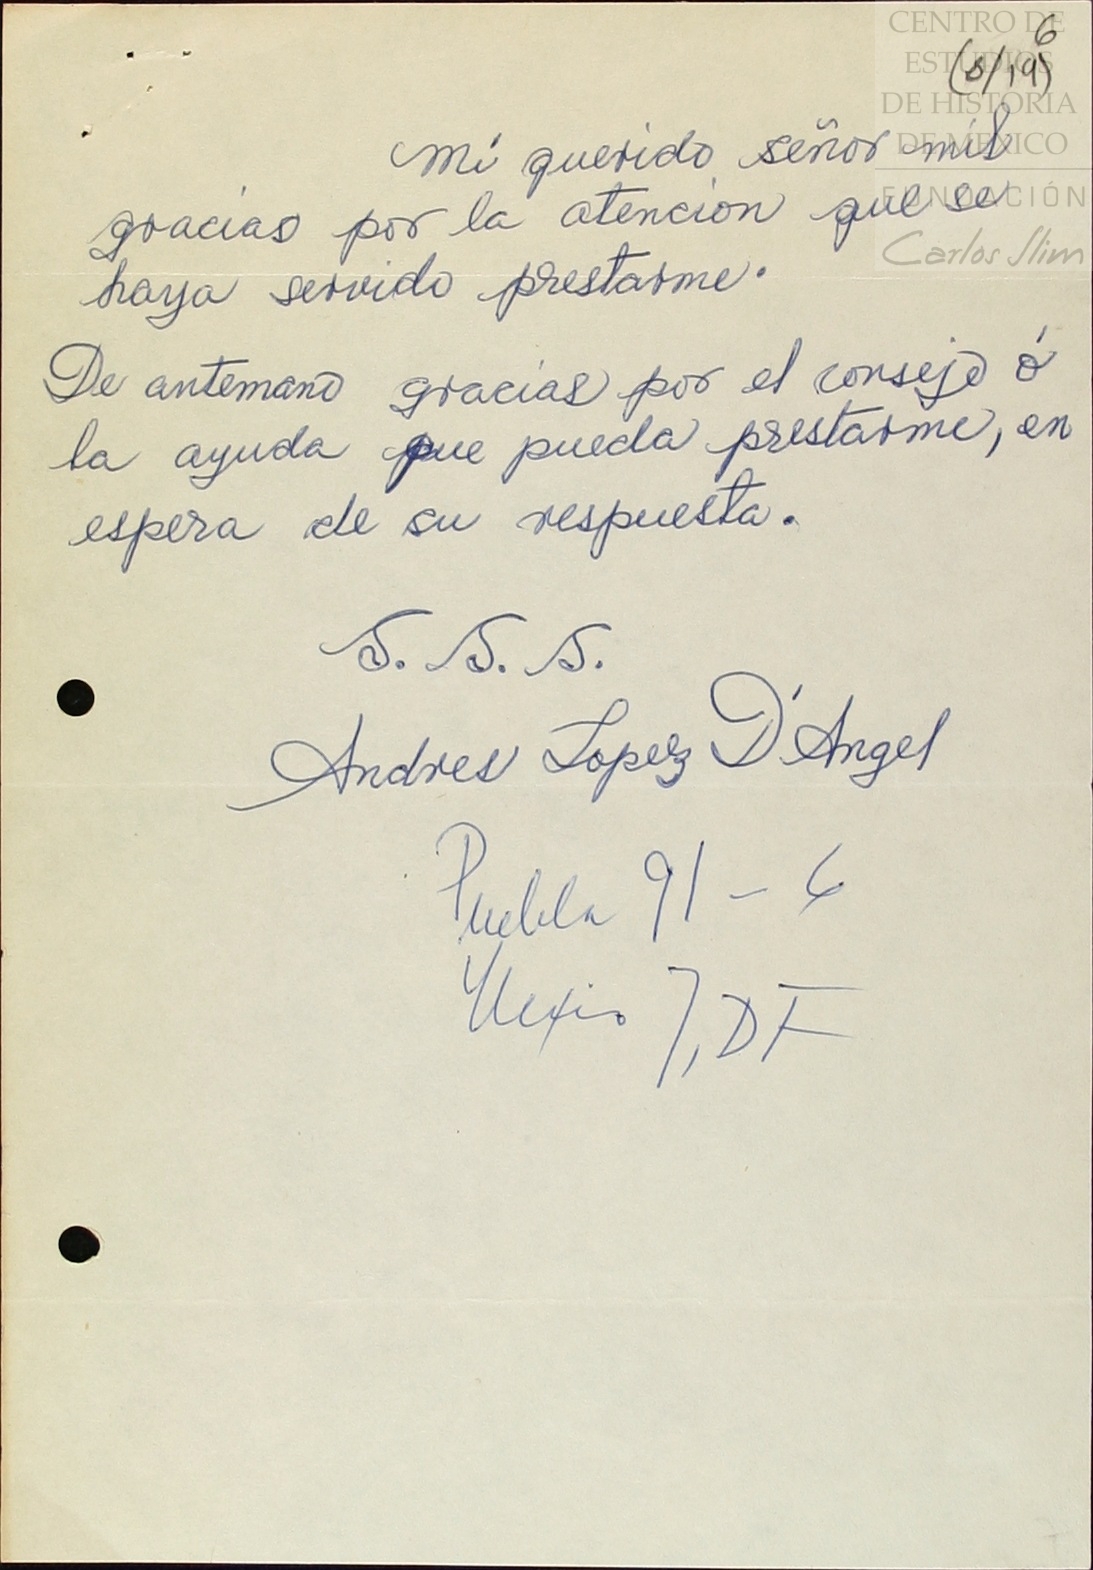 6
(5/19)
CENTRO DE
ESTUDIOS
DE HISTORIA
DE MÉXICO
FUNDACIÓN
Carlos Slim
Mi querido señor mil
gracias por la atencion que se
haya servido prestarme.
De antemano gracias por el consejo ó
la ayuda que pueda prestarme, en
espera de su respuesta.
S. S. S.
Andres Lopez D'Angel
Puebla 91 - 6
Mexico 7, DF